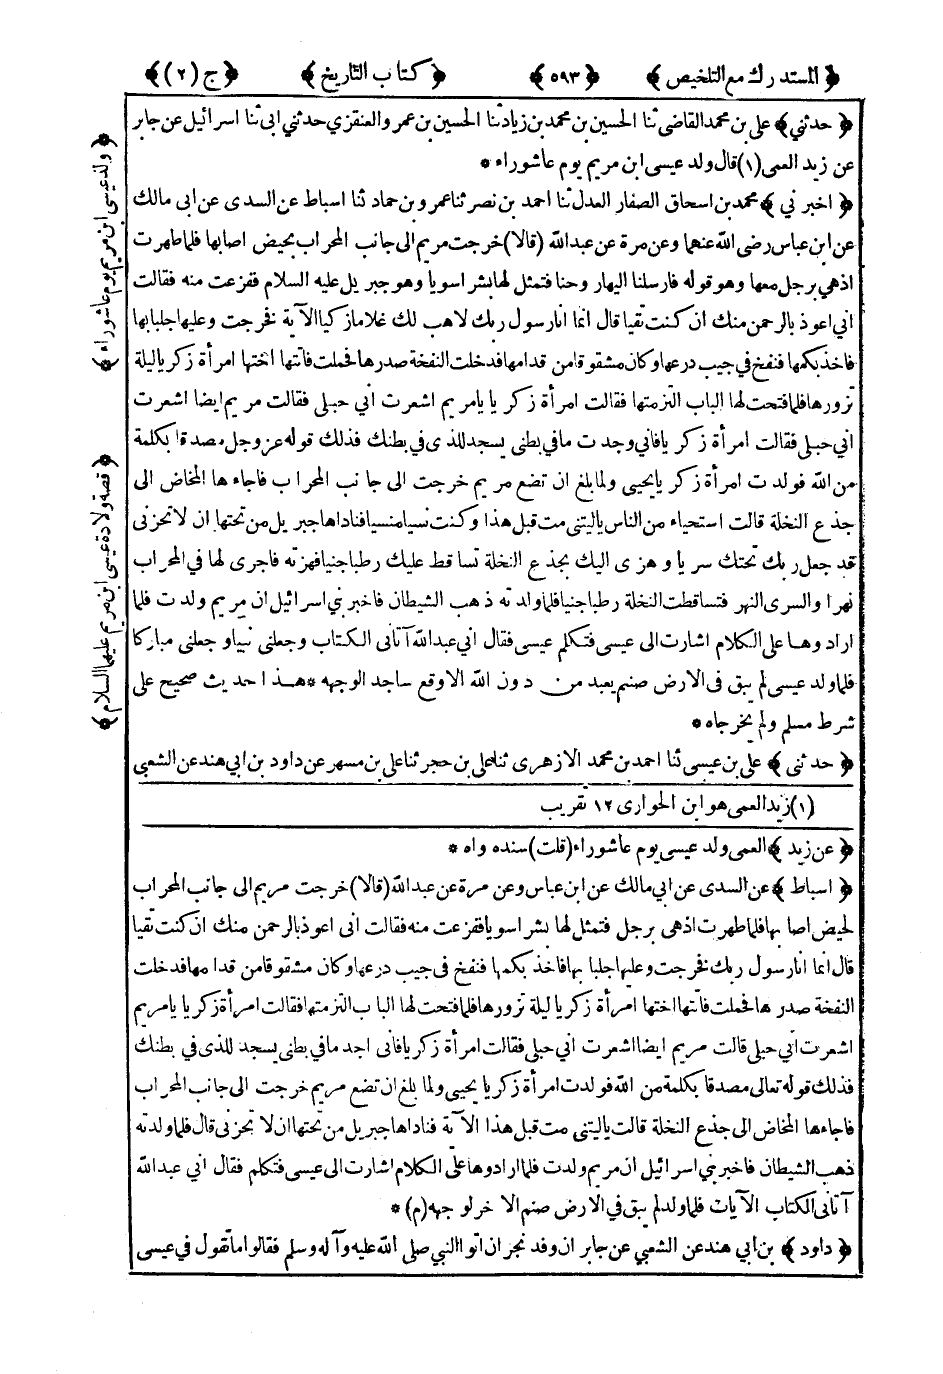 ﴿ المستدرك مع التلخيص ﴾ ﴿ ٥٩٣ ﴾ ﴿ كتاب التاريخ ﴾ ﴿ ج (٢) ﴾
﴿ حدثني ﴾ على بن محمد القاضى ثنا الحسين بن محمد بن زياد ثنا الحسين بن عمرو العنقزي حدثني ابى ثنا اسرائيل عن جابر
عن زيد العمى (١) قال ولد عيسى ابن مريم يوم عاشوراء *
﴿ اخبرني ﴾ محمد بن اسحاق الصفار العدل ثنا احمد بن نصر ثنا عمرو بن حماد ثنا اسباط عن السدى عن ابى مالك
عن ابن عباس رضى الله عنهما وعن مرة عن عبدالله (قالا) خرجت مريم الى جانب المحراب بحيض اصابها فلما طهرت
اذهي برجل معها وهو قوله فارسلنا اليها روحنا فتمثل لها بشرا سويا وهو جبريل عليه السلام ففزعت منه فقالت
انى اعوذ بالرحمن منك ان كنت تقيا قال انما انا رسول ربك لاهب لك غلاما زكيا الآية فخرجت وعليها جلبابها
فاخذ بكمها فنفخ في جيب درعها وكان مشقوقا من قدامها فدخلت النفخة صدرها فحملت فاتتها اختها امرأة زكريا ليلة
تزورها فلما فتحت لها الباب التزمتها فقالت امرأة زكريا يا مريم اشعرت أني حبلى فقالت مريم ايضا اشعرت
أني حبلى فقالت امرأة زكريا فانى وجدت ما في بطنى يسجد للذى في بطنك فذلك قوله عز وجل مصدقا بكلمة
من الله فولدت امرأة زكريا يحيى ولما بلغ ان تضع مريم خرجت الى جانب المحراب فاجاءها المخاض الى
جذع النخلة قالت استحياء من الناس ياليتنى مت قبل هذا وكنت نسيا منسيا فناداها جبريل من تحتها ان لا تحزنى
قد جعل ربك تحتك سريا وهزى اليك بجذع النخلة تساقط عليك رطبا جنيا فهزته فاجرى لها في المحراب
نهرا والسرى النهر فتساقطت النخلة رطبا جنيا فلما ولدته ذهب الشيطان فاخبر بني اسرائيل ان مريم ولدت فلما
ارادوها على الكلام اشارت الى عيسى فتكلم عيسى فقال انى عبدالله آتانى الكتاب وجعلنى نبيا وجعلنى مباركا
فلما ولد عيسى لم يبق فى الارض صنم يعبد من دون الله الا وقع ساجد الوجهه * هذا حديث صحيح على
شرط مسلم ولم يخرجاه *
﴿ حدثنى ﴾ على بن عيسى ثنا احمد بن محمد الازهرى ثنا على بن حجر ثنا على بن مسهر عن داود بن ابى هند عن الشعبى
(١) زيد العمى هو ابن الحوارى ١٢ تقريب
﴿ عن زيد ﴾ العمى ولد عيسى يوم عاشوراء (قلت) سنده واه *
﴿ اسباط ﴾ عن السدى عن ابى مالك عن ابن عباس وعن مرة عن عبد الله (قالا) خرجت مريم الى جانب المحراب
لحيض اصابها فلما طهرت اذهى برجل فتمثل لها بشرا سويا ففزعت منه فقالت انى اعوذ بالرحمن منك ان كنت تقيا
قال انما انا رسول ربك فخرجت وعليها جلبابها فاخذ بكمها فنفخ فى جيب درعها وكان مشقوقا من قدامها فدخلت
النفخة صدرها فحملت فاتتها اختها امرأة زكريا ليلة تزورها فلما فتحت لها الباب التزمتها فقالت امرأة زكريا يا مريم
اشعرت أني حبلى قالت مريم ايضا اشعرت انى حبلى فقالت امرأة زكريا فانى اجد ما في بطنى يسجد للذى في بطنك
فذلك قوله تعالى مصدقا بكلمة من الله فولدت امرأة زكريا يحيى ولما بلغ ان تضع مريم خرجت الى جانب المحراب
فاجاءها المخاض الى جذع النخلة قالت ياليتنى مت قبل هذا الآية فناداها جبريل من تحتها ان لا تحزنى قال فلما ولدته
ذهب الشيطان فاخبر بني اسرائيل ان مريم ولدت فلما ارادوها على الكلام اشارت الى عيسى فتكلم فقال أني عبدالله
آتانى الكتاب الآيات فلما ولد لم يبق في الارض صنم الا خر لوجهه (م) *
﴿ داود ﴾ بن ابي هند عن الشعبي عن جابر ان وفد نجران اتوا النبي صلى الله عليه وآله وسلم فقالوا ما تقول في عيسى
﴿ ولد عيسى ابن مريم يوم عاشوراء ﴾
﴿ قصة ولادة عيسى ابن مريم عليهما السلام ﴾